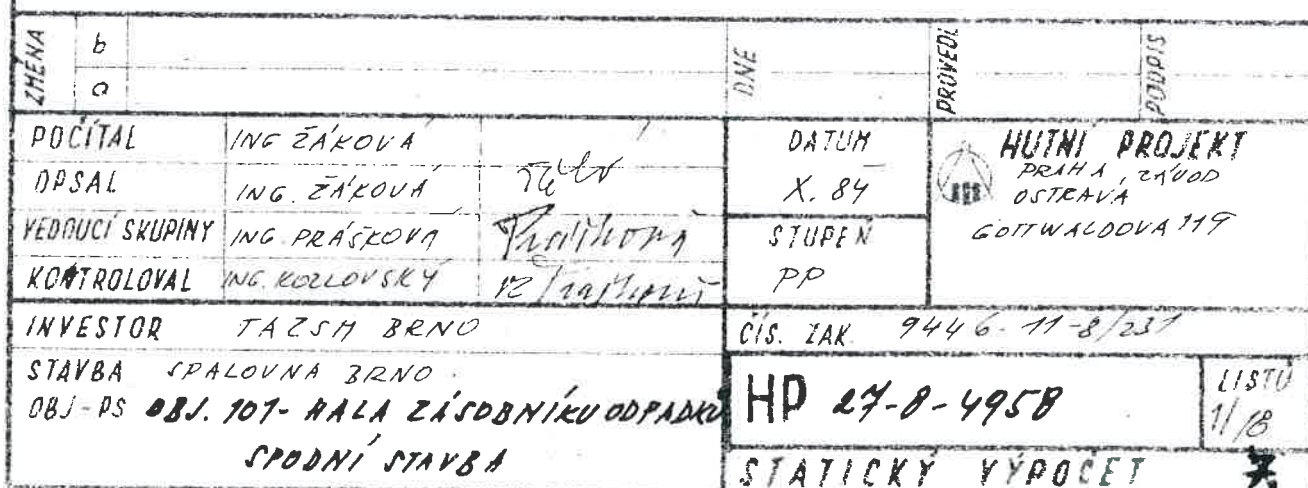 ZMĚNA b DNE PROVEDL PODPIS
a
POČÍTAL ING ŽÁKOVÁ
OPSAL ING. ŽÁKOVÁ
VEDOUCÍ SKUPINY ING. PRÁŠKOVÁ
KONTROLOVAL ING. KOZLOVSKÝ
DATUM
X. 84
STUPEŇ
PP
HUTNÍ PROJEKT
PRAHA, ZÁVOD
OSTRAVA
GOTTWALDOVA 119
INVESTOR TAZSM BRNO
ČÍS. ZAK. 9446-11-8/231
STAVBA SPALOVNA BRNO.
OBJ-PS OBJ. 101- HALA ZÁSOBNÍKU ODPADKŮ
SPODNÍ STAVBA
HP 27-8-4958
LISTŮ
1/18
STATICKÝ VÝPOČET